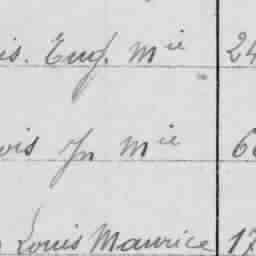 is. Eug. Mie 24
ois Jn Mie 6
Louis Maurice 17